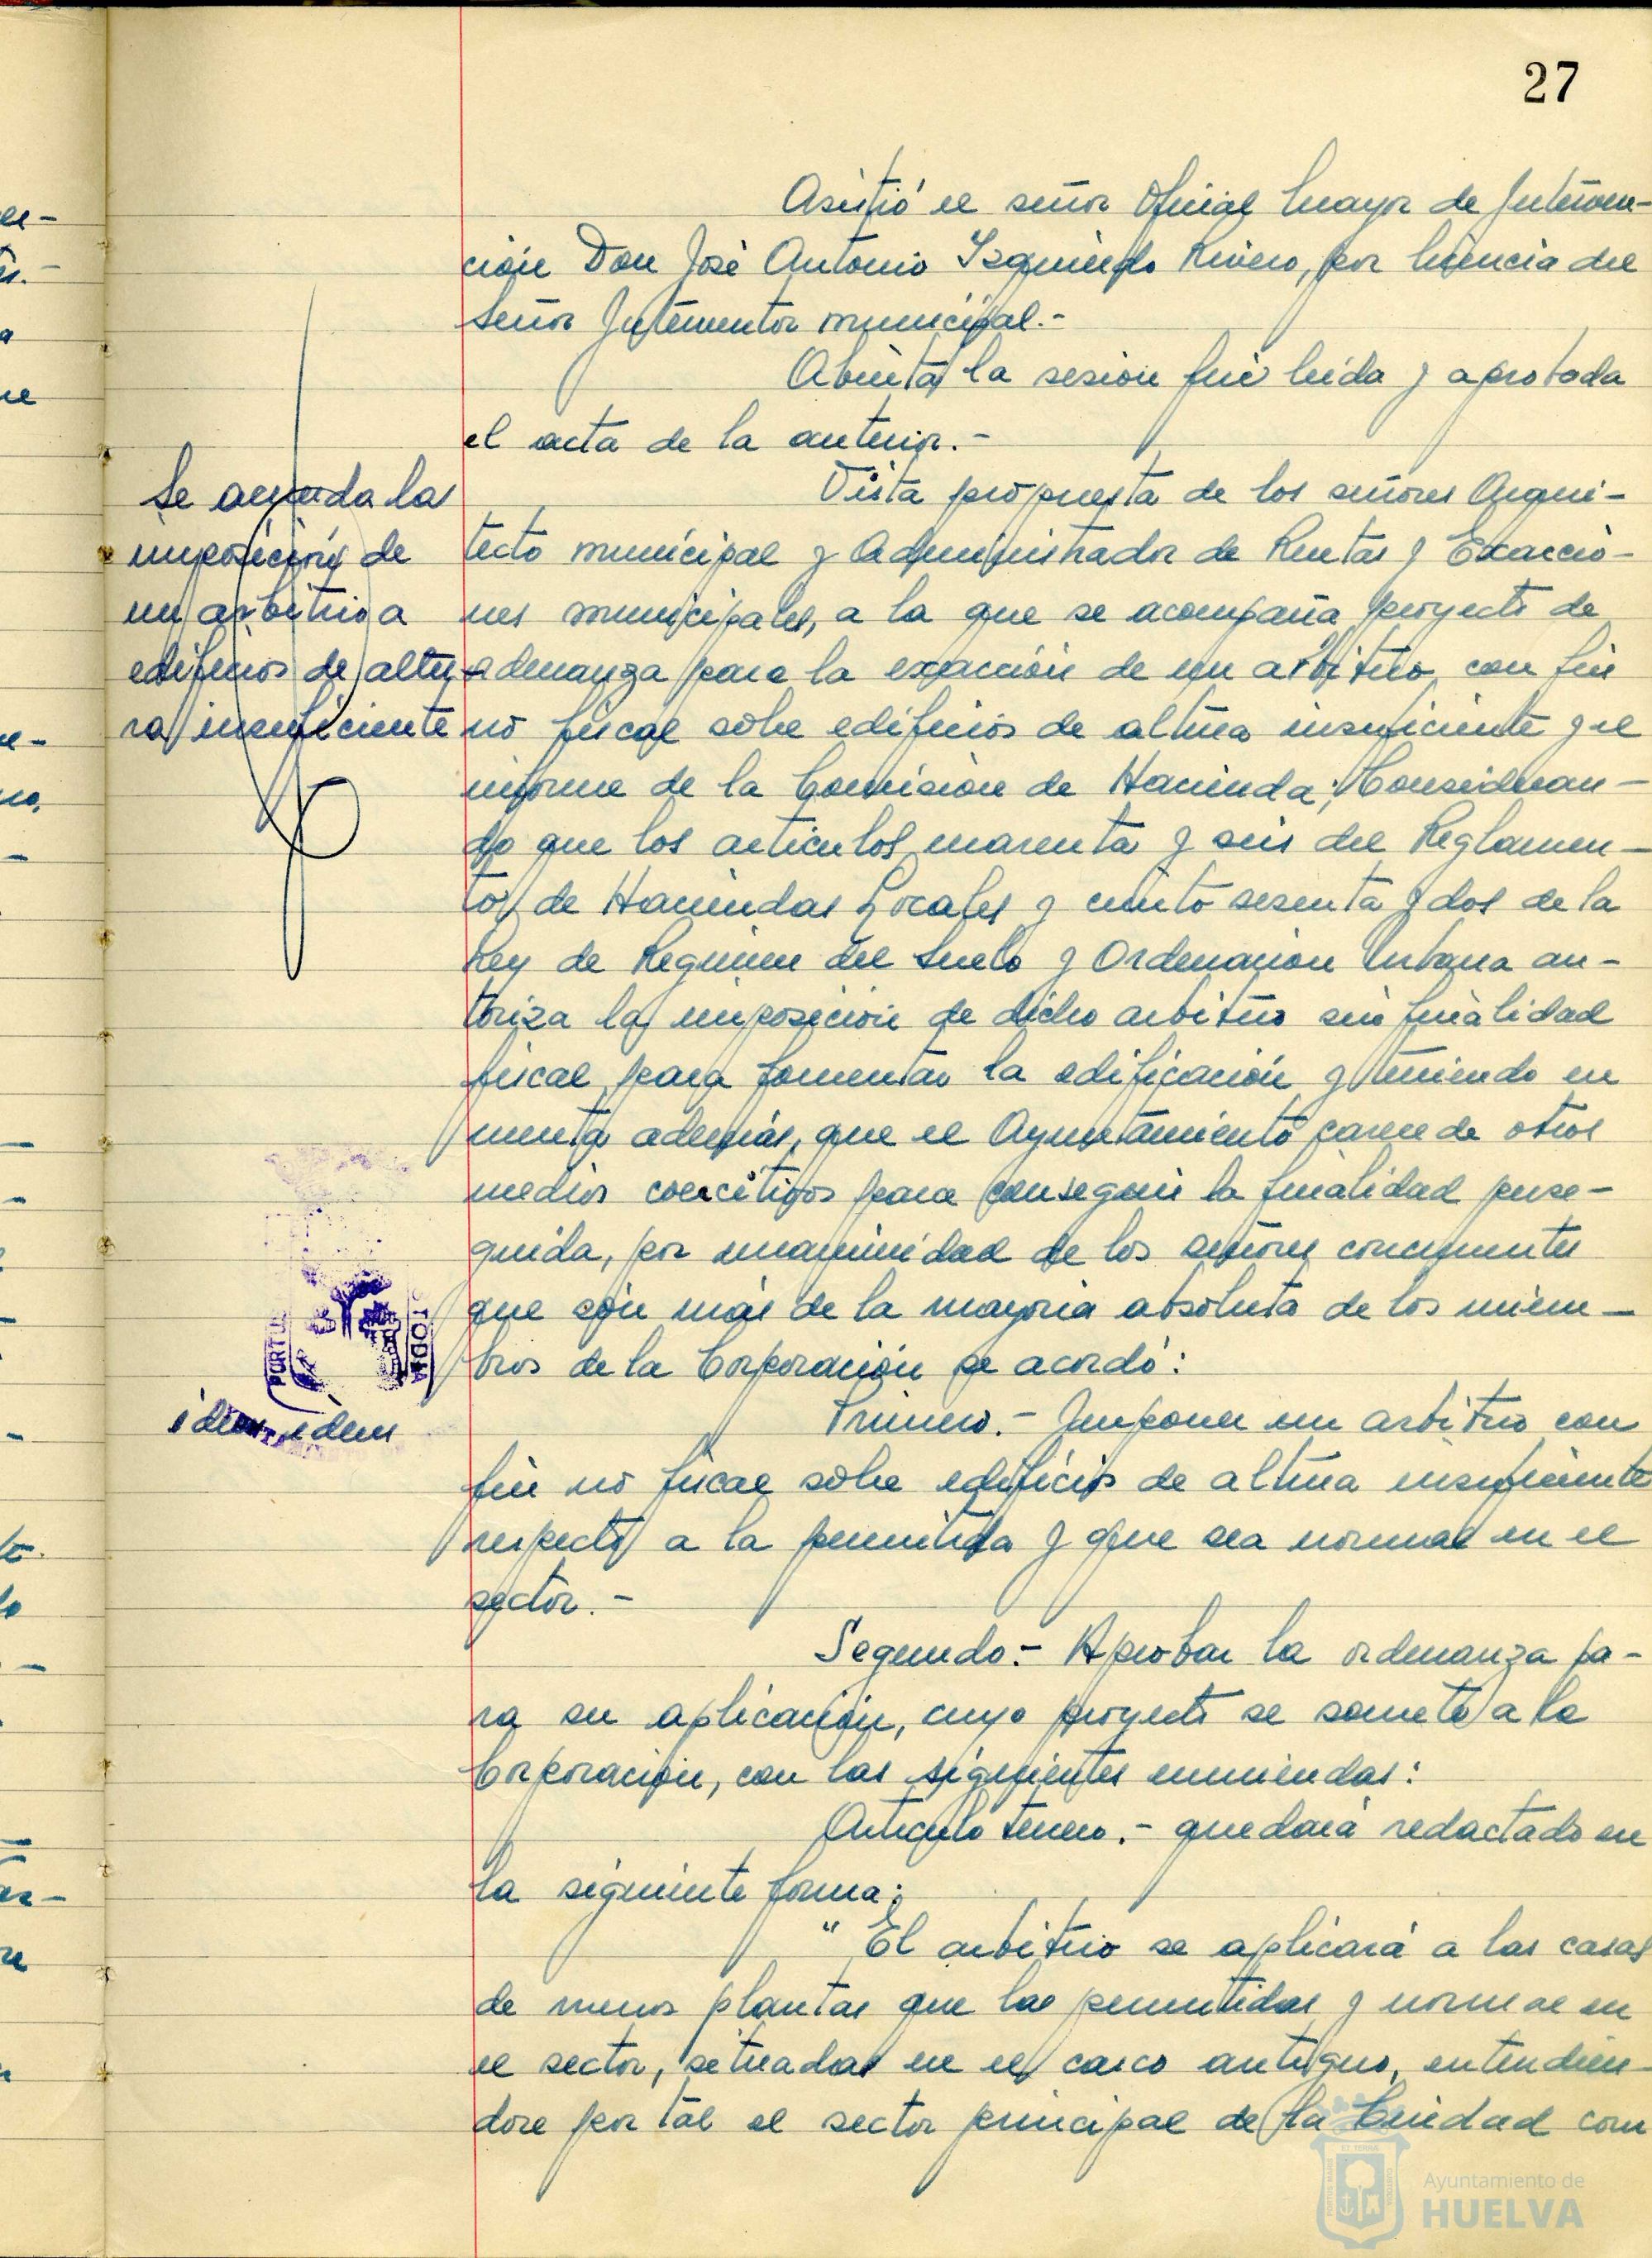 27
Asistió el señor Oficial Mayor de Interven-
ción Don José Antonio Izquierdo Rivero, por licencia del
Señor Interventor municipal.-
Abierta la sesión fué leída y aprobada
el acta de la anterior.-
Se acuerda la
imposición de
un arbitrio a
edificios de altu-
ra insuficiente
Vista propuesta de los señores Arqui-
tecto municipal y Administrador de Rentas y Exaccio-
nes municipales, a la que se acompaña proyecto de
ordenanza para la exacción de un arbitrio con fin
no fiscal sobre edificios de altura insuficiente y el
informe de la Comisión de Hacienda; Consideran-
do que los artículos cuarenta y seis del Reglamen-
to de Haciendas Locales y ciento sesenta y dos de la
Ley de Regimen del Suelo y Ordenación Urbana au-
toriza la imposición de dicho arbitrio sin finalidad
fiscal para fomentar la edificación y teniendo en
cuenta además, que el Ayuntamiento carece de otros
medios coercitivos para conseguir la finalidad perse-
guida, por unanimidad de los señores concurrentes
que son más de la mayoria absoluta de los miem-
bros de la Corporación se acordó:
idem idem
Primero.- Imponer un arbitrio con
fin no fiscal sobre edificios de altura insuficiente
respecto a la permitida y que sea normal en el
sector.-
Segundo.- Aprobar la ordenanza pa-
ra su aplicación, cuyo proyecto se somete a la
Corporación, con las siguientes enmiendas:
Artículo tercero.- quedará redactado en
la siguiente forma:
"El arbitrio se aplicará a las casas
de menos plantas que las permitidas y normal en
el sector, situadas en el casco antiguo, entendien-
dose por tal el sector principal de la Ciudad com
PORTUS
Ayuntamiento de
HUELVA